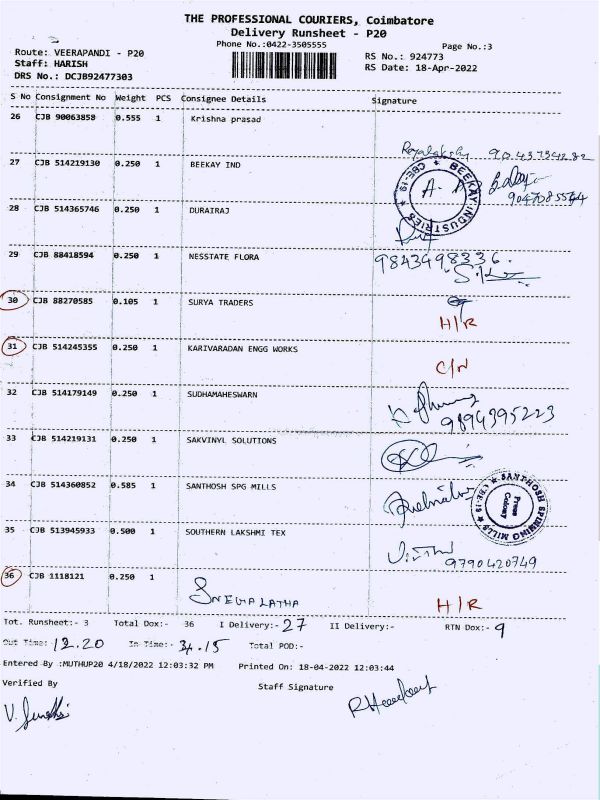 THE PROFESSIONAL COURIERS, Coimbatore
Delivery Runsheet - P20
Phone No.:0422-3505555
Page No.:3
Route: VEERAPANDI - P20
Staff: HARISH
DRS No.: DCJB92477303
RS No.: 924773
RS Date: 18-Apr-2022
S No Consignment No Weight PCS Consignee Details Signature
26 CJB 90063858 0.555 1 Krishna prasad
27 CJB 514219130 0.250 1 BEEKAY IND
BEEKAY INDUSTRIES
CBE-19
9047085564
28 CJB 514365746 0.250 1 DURAIRAJ
29 CJB 88418594 0.250 1 NESSTATE FLORA
9843498336.
30 CJB 88270585 0.105 1 SURYA TRADERS
H/R
31 CJB 514245355 0.250 1 KARIVARADAN ENGG WORKS
C/N
32 CJB 514179149 0.250 1 SUDHAMAHESWARN
9894395223
33 CJB 514219131 0.250 1 SAKVINYL SOLUTIONS
34 CJB 514360852 0.585 1 SANTHOSH SPG MILLS
SANTHOSH SPINNING MILLS
CBE-19
35 CJB 513945933 0.500 1 SOUTHERN LAKSHMI TEX
9790420749
36 CJB 1118121 0.250 1 SNEGALATHA
H/R
Tot. Runsheet:- 3 Total Dox:- 36 I Delivery:- 27 II Delivery:- RTN Dox:- 9
Out Time: 12.20 In Time:- Total POD:-
Entered By :MUTHUP20 4/18/2022 12:03:32 PM Printed On: 18-04-2022 12:03:44
Verified By
Staff Signature